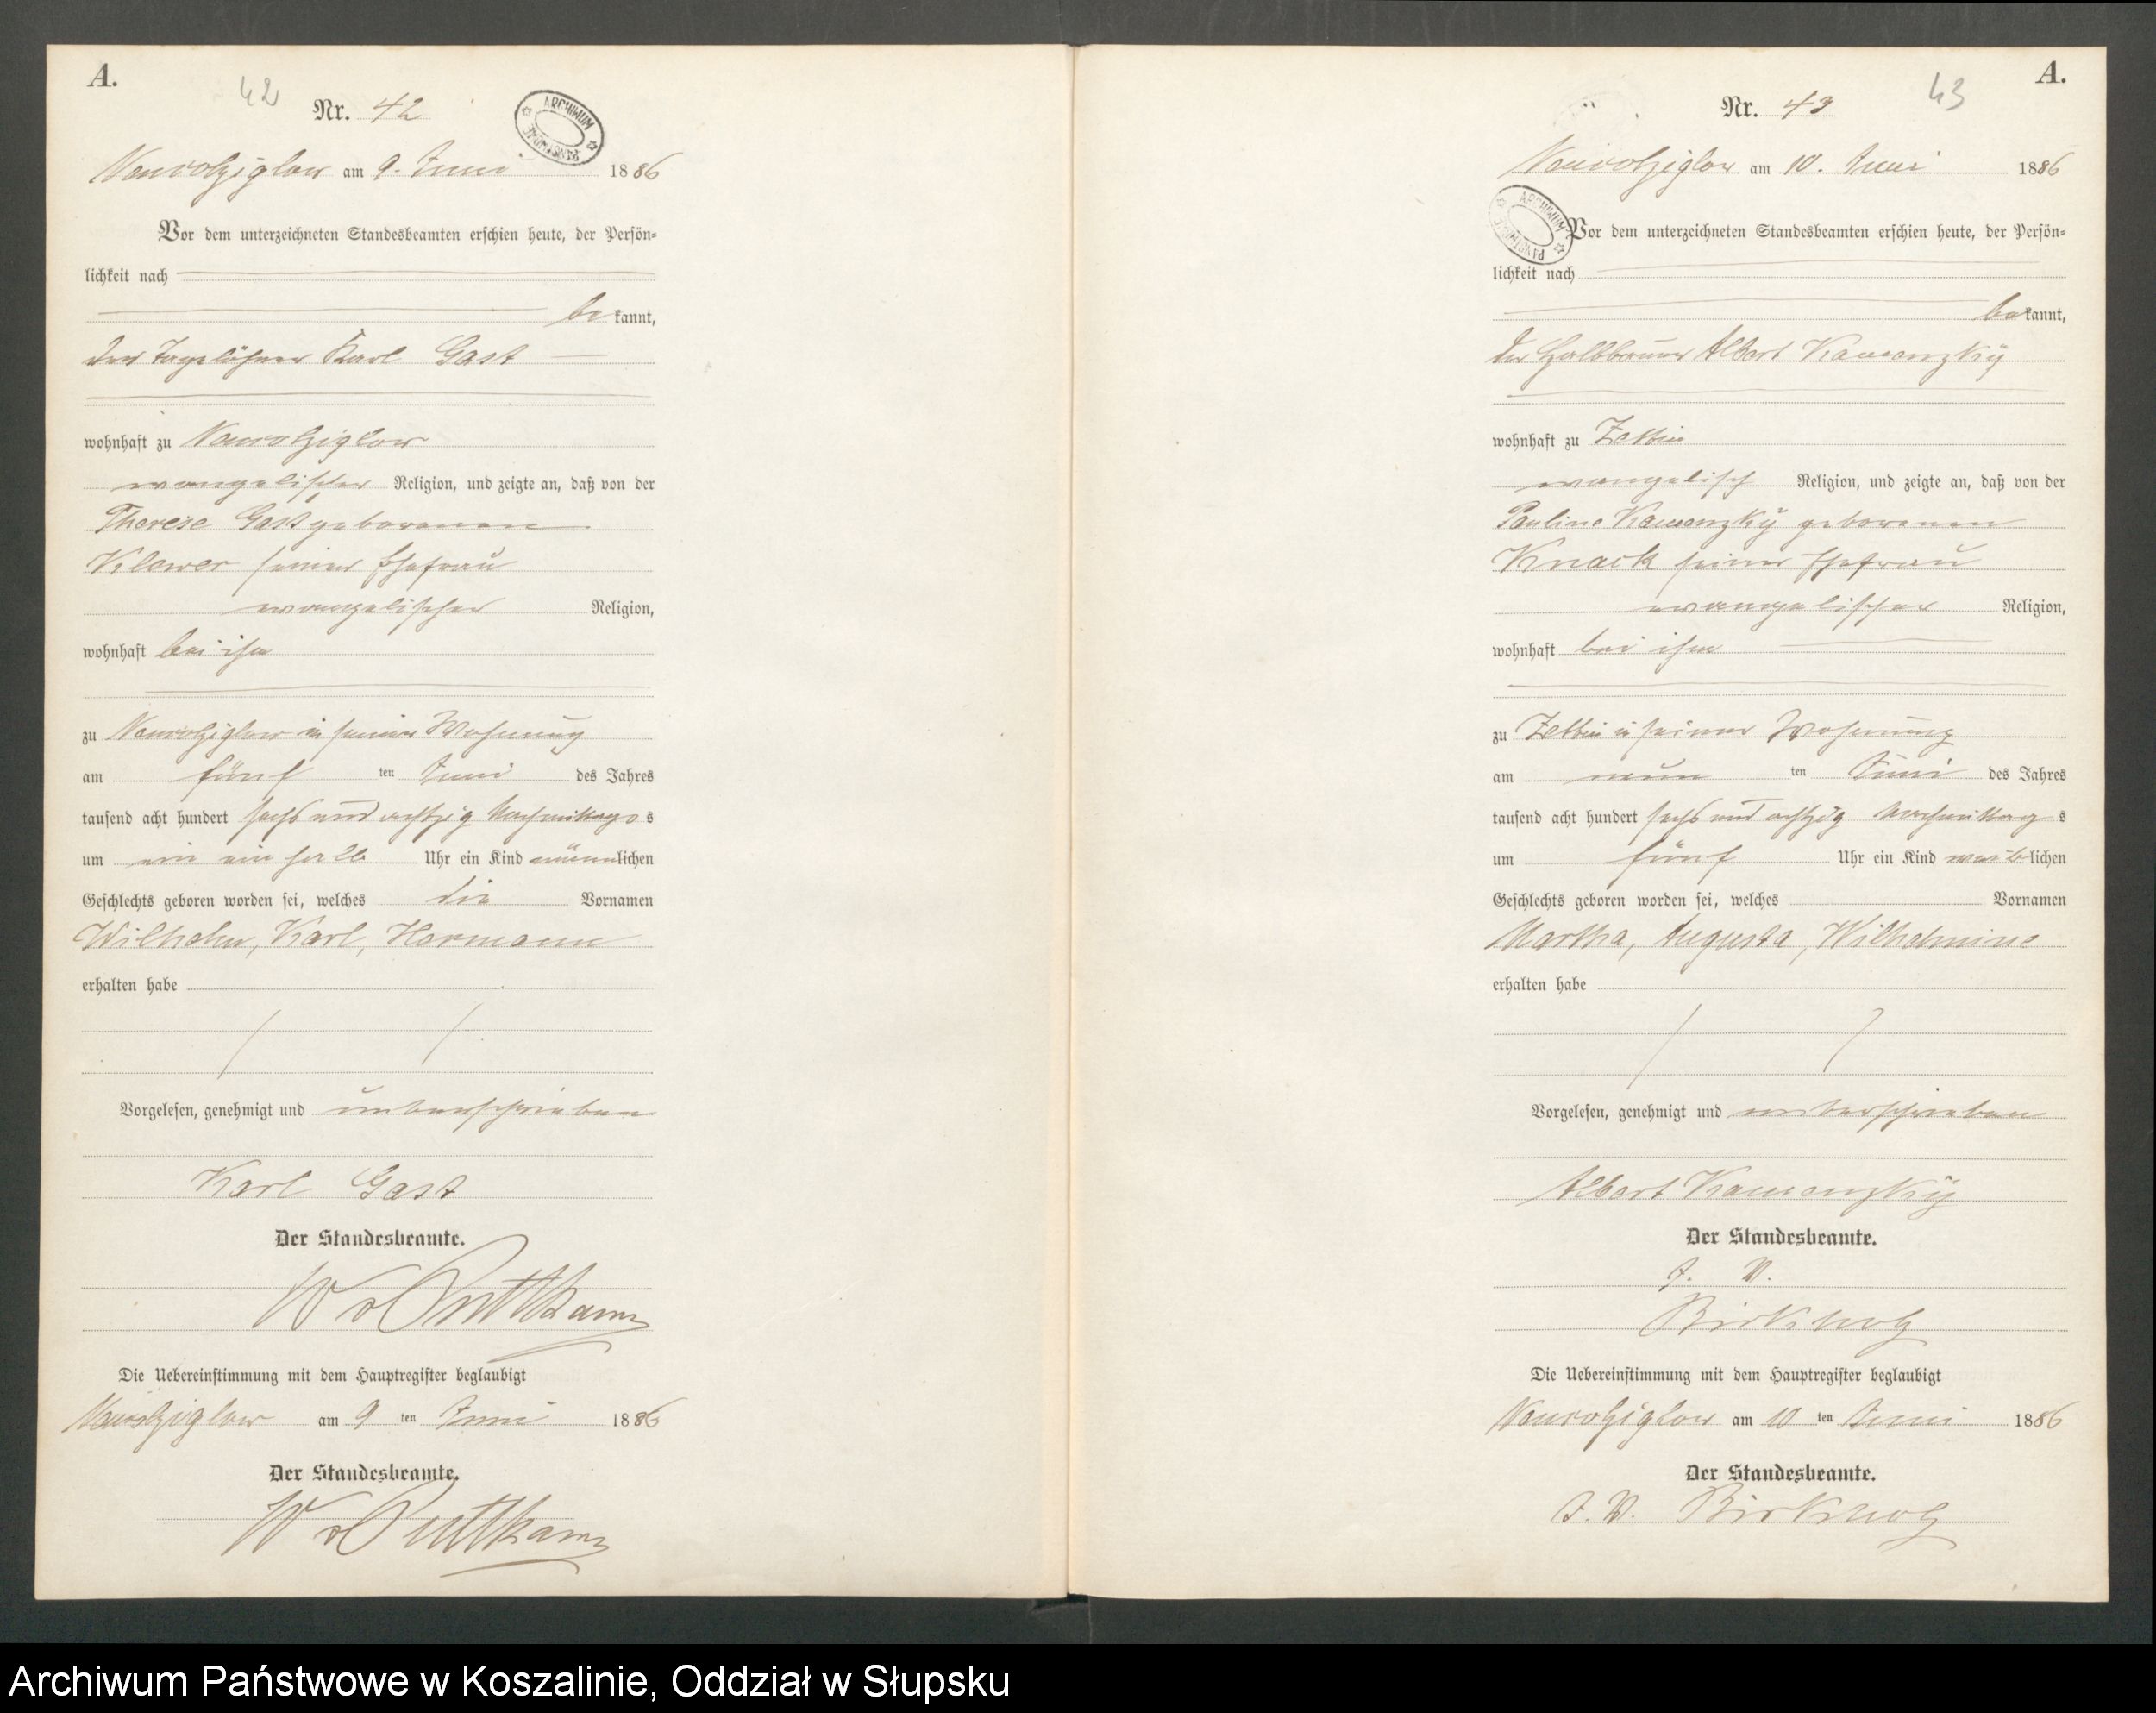 A.
42
Nr. 42
ARCHIWUM PAŃSTWOWE
am 9. Juni 1886
Vor dem unterzeichneten Standesbeamten erschien heute, der Persön-
lichkeit nach
bekannt,
der Tagelöhner Karl Gast
wohnhaft zu
evangelischer Religion, und zeigte an, daß von der
Therese Gast geborenen
Klewer seiner Ehefrau
evangelischer Religion,
wohnhaft bei ihm
zu in seiner Wohnung
am fünf ten Juni des Jahres
tausend acht hundert sechs und achtzig Nachmittags
um ein ein halb Uhr ein Kind männlichen
Geschlechts geboren worden sei, welches die Vornamen
Wilhelm, Karl, Hermann
erhalten habe
Vorgelesen, genehmigt und unterschrieben
Karl Gast
Der Standesbeamte.
W v Puttkamer
Die Uebereinstimmung mit dem Hauptregister beglaubigt
am 9 ten Juni 1886
Der Standesbeamte.
W v Puttkamer
A.
43
Nr. 43
ARCHIWUM PAŃSTWOWE
am 10. Juni 1886
Vor dem unterzeichneten Standesbeamten erschien heute, der Persön-
lichkeit nach
bekannt,
der Halbbauer Albert Kamenzky
wohnhaft zu Zettin
evangelisch Religion, und zeigte an, daß von der
Pauline Kamenzky geborenen
Knack seiner Ehefrau
evangelischer Religion,
wohnhaft bei ihm
zu Zettin in seiner Wohnung
am neun ten Juni des Jahres
tausend acht hundert sechs und achtzig Nachmittags
um fünf Uhr ein Kind weiblichen
Geschlechts geboren worden sei, welches Vornamen
Martha, Augusta, Wilhelmine
erhalten habe
Vorgelesen, genehmigt und unterschrieben
Albert Kamenzky
Der Standesbeamte.
J. V.
Birkholz
Die Uebereinstimmung mit dem Hauptregister beglaubigt
am 10 ten Juni 1886
Der Standesbeamte.
J. V. Birkholz
Archiwum Państwowe w Koszalinie, Oddział w Słupsku